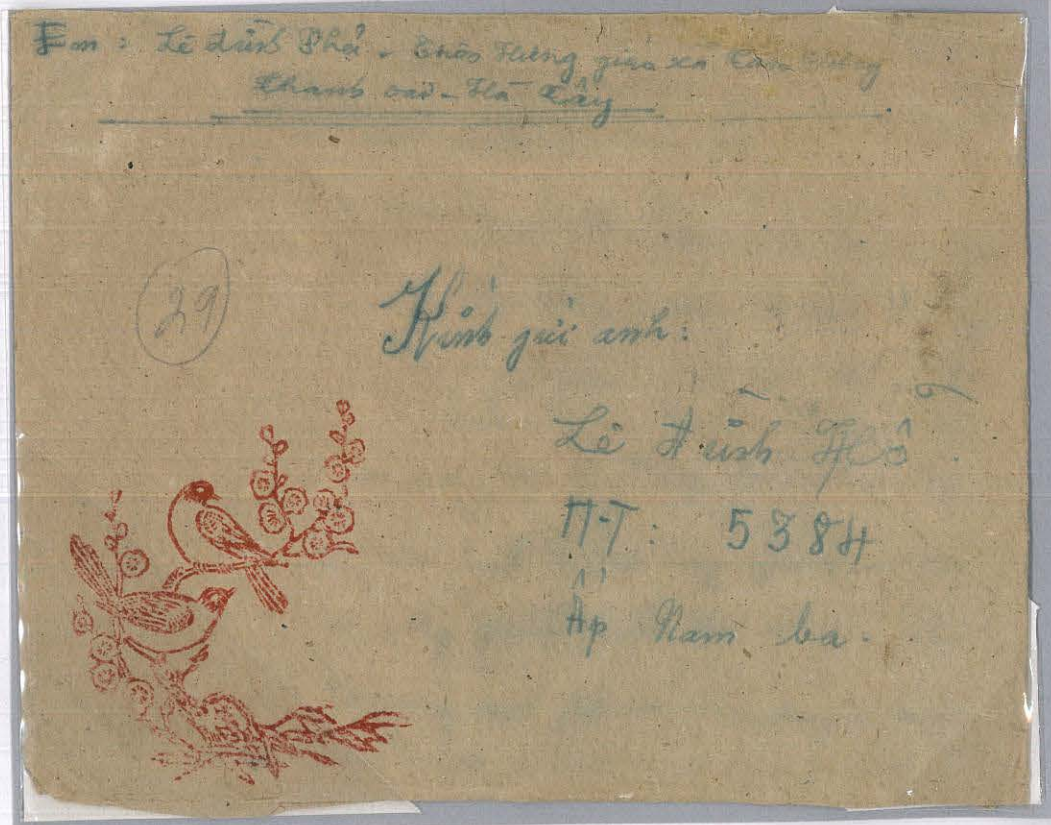 Em : Lê đình Phả - Thôn Hưng giáo xã Tam Hưng
Thanh oai - Hà Tây
29
Kính gửi anh :
Lê Đình Hồ
H-T : 5384
Ấp Nam ba.